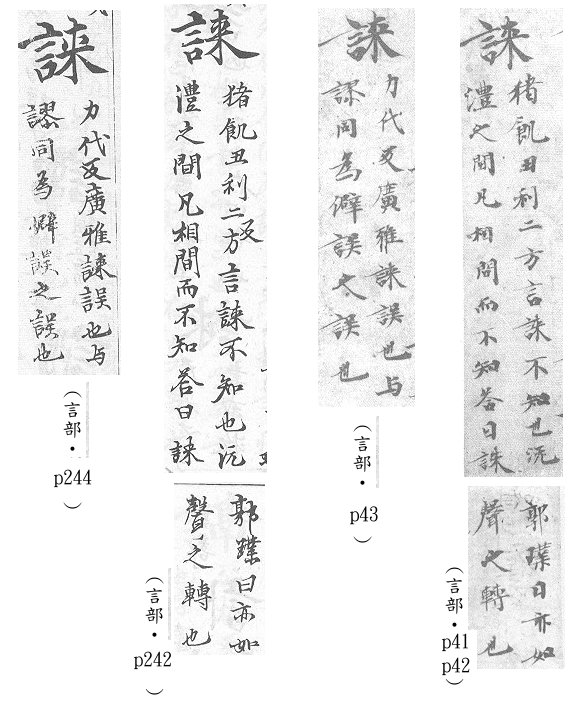 䚅
猪飢丑利二方言䚅不知也沅
澧之間凡相問而不知答曰䚅
郭璞曰亦如
聲之轉也
(言部・p41
p42)
䚅
力代反廣雅䚅誤也与
謬同為僻誤之誤也
(言部・p43)
䚅
猪飢丑利二反方言䚅不知也沅
澧之間凡相間而不知答曰䚅
郭璞曰亦如
聲之轉也
(言部・p242)
䚅
力代反廣雅䚅誤也与
謬同為僻誤之誤也
(言部・p244)